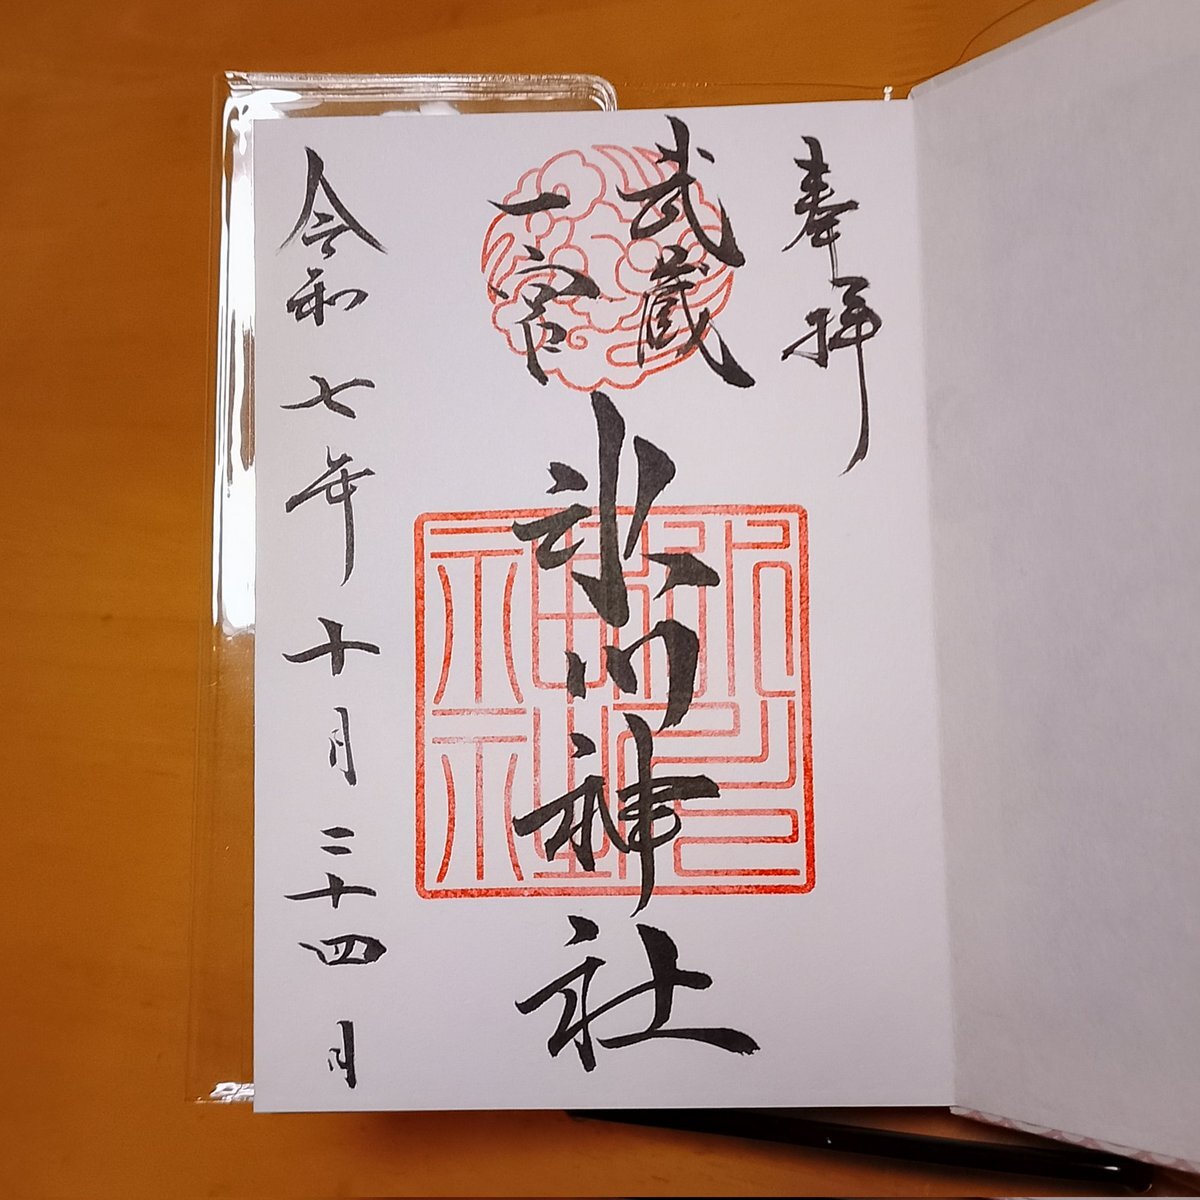 奉拝
武蔵
一宮
氷川神社
氷川神社
令和七年十月二十四日